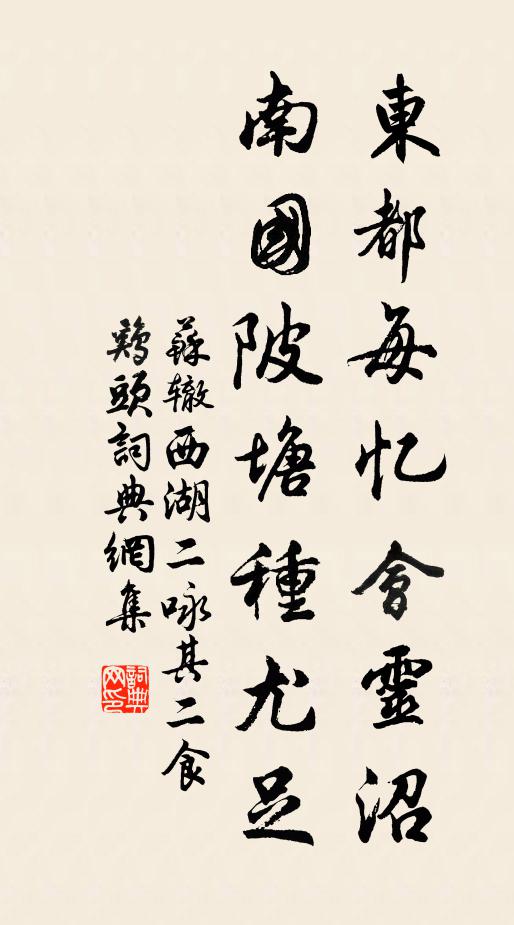 東都每忆會靈沼
南國陂塘種尤足
蘇辙西湖二咏其二食
鷄頭詞典網集
詞典网印